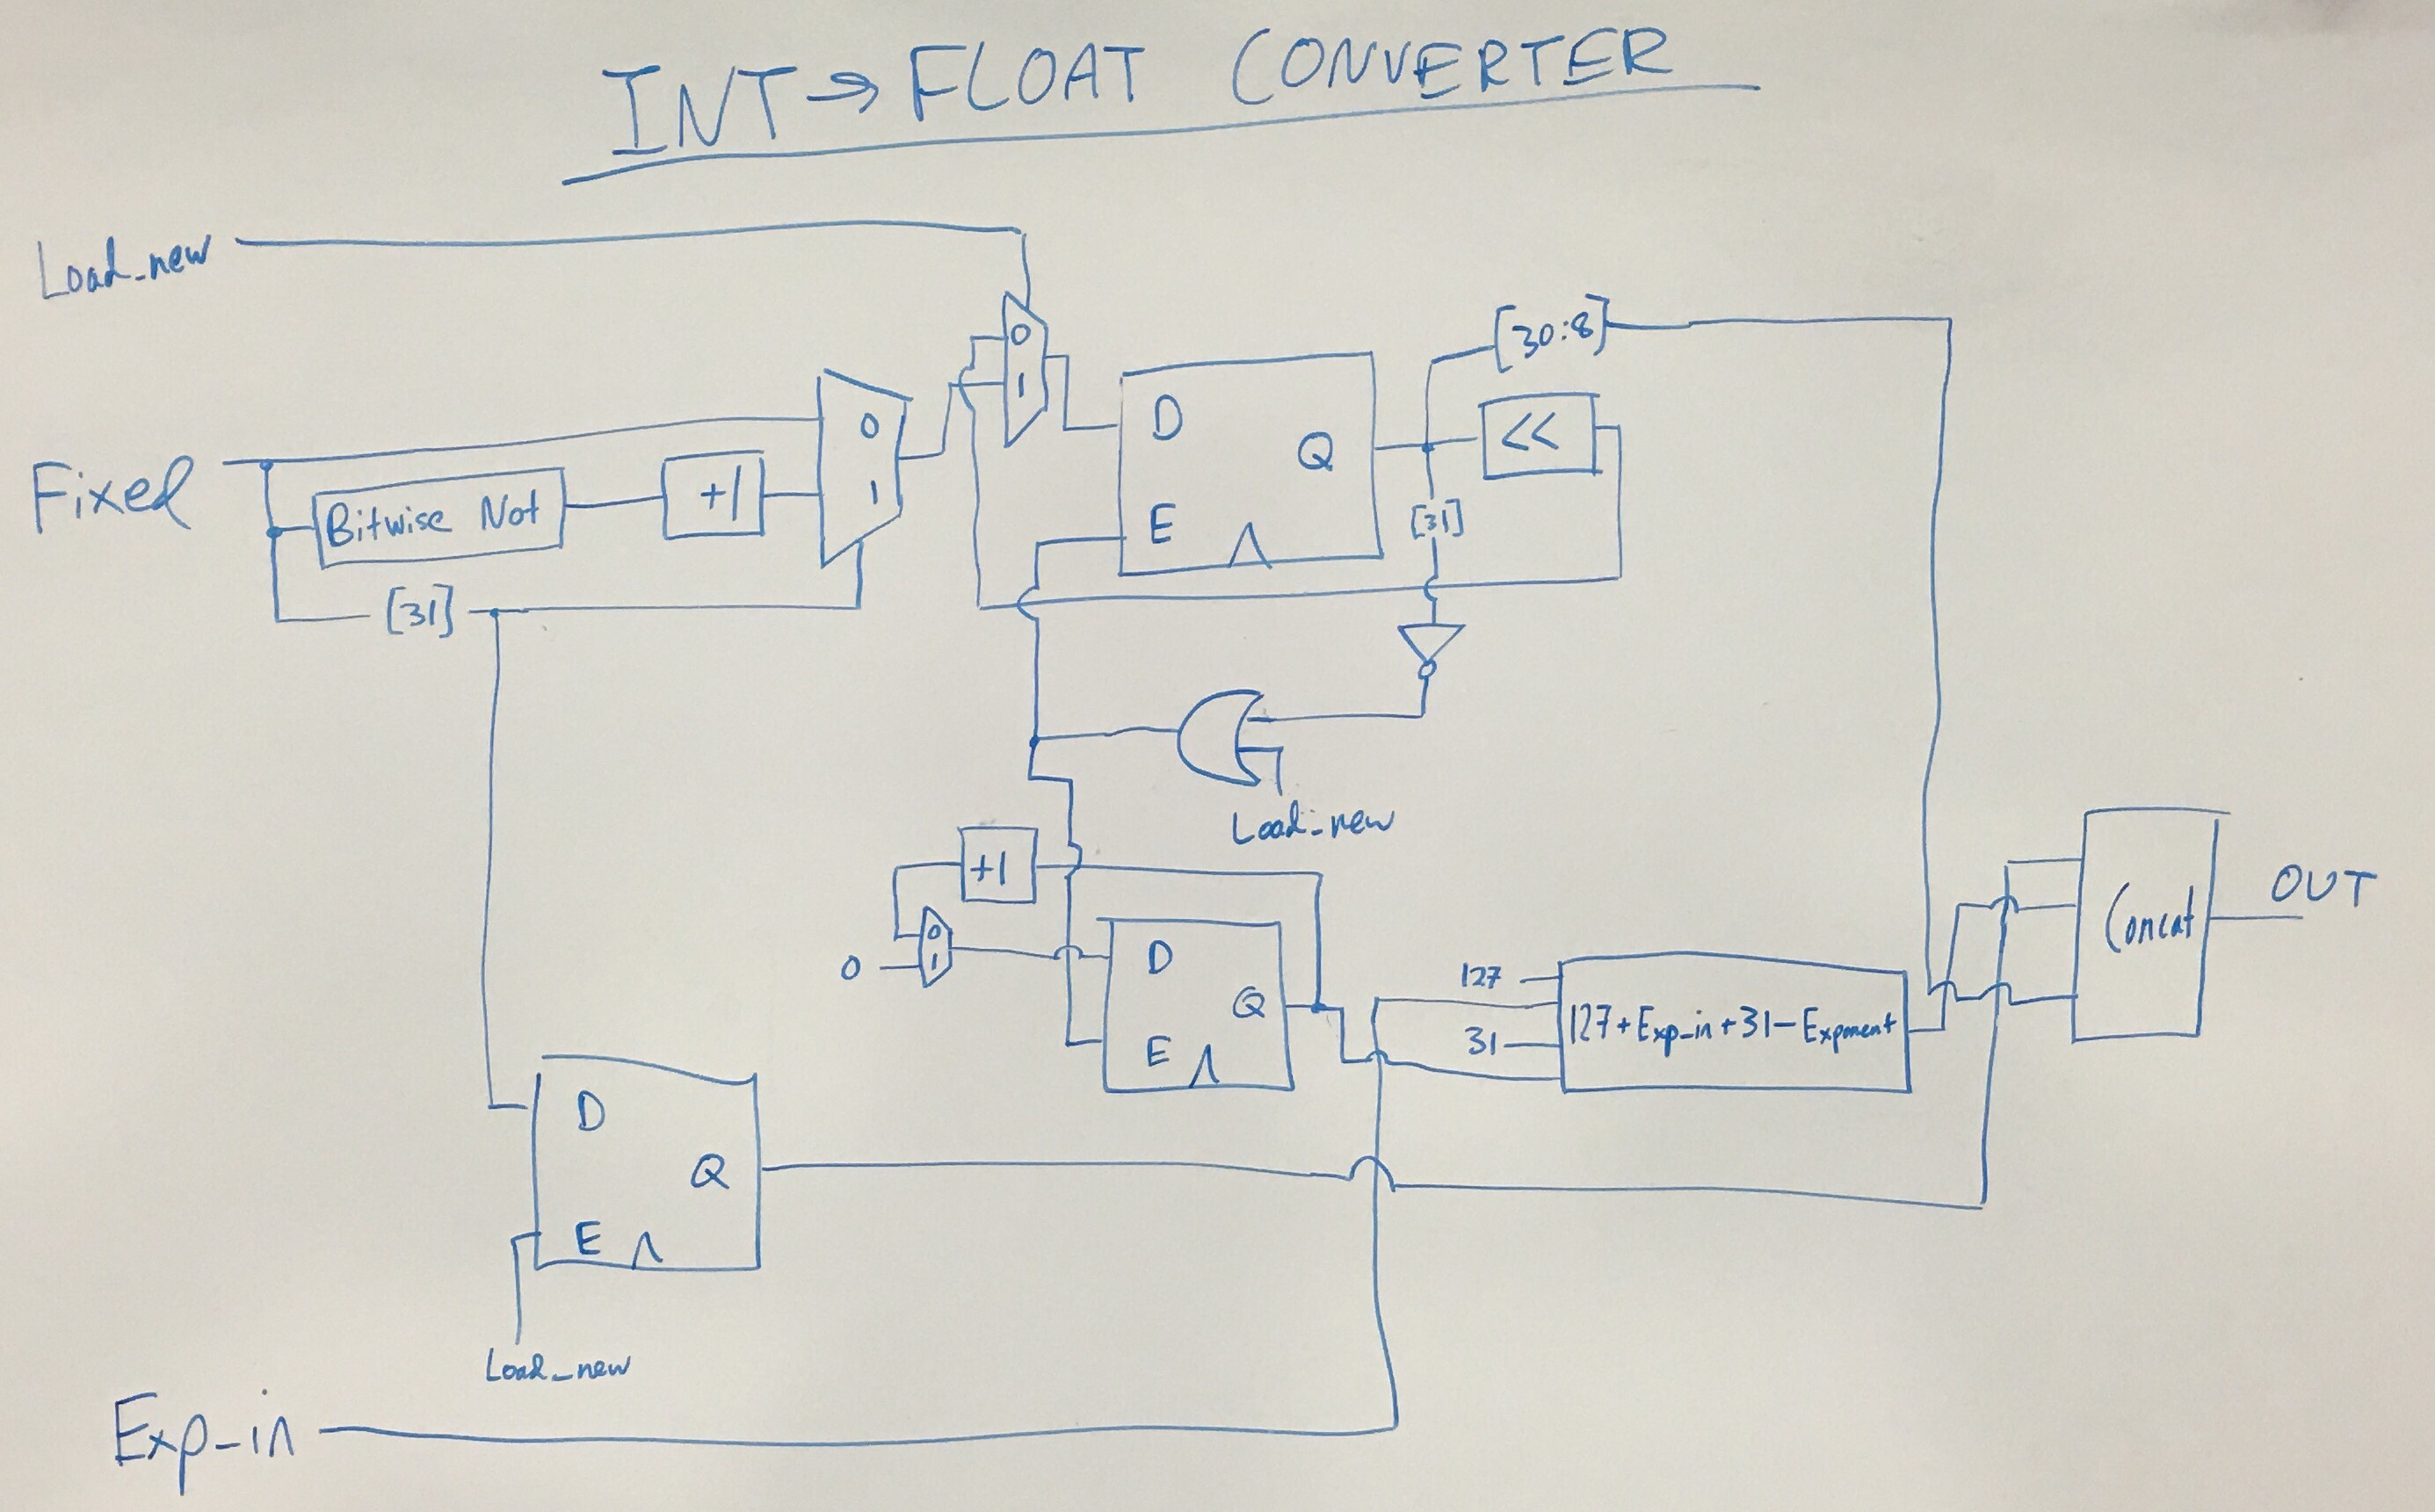 INT → FLOAT CONVERTER
Load_new
0
1
[30:8]
D
Q
E
<<
[31]
Fixed
Bitwise Not
+1
0
1
[31]
Load_new
+1
0
0
1
D
Q
E
127
31
127+Exp_in+31-Exponent
Concat
OUT
D
Q
E
Load_new
Exp_in